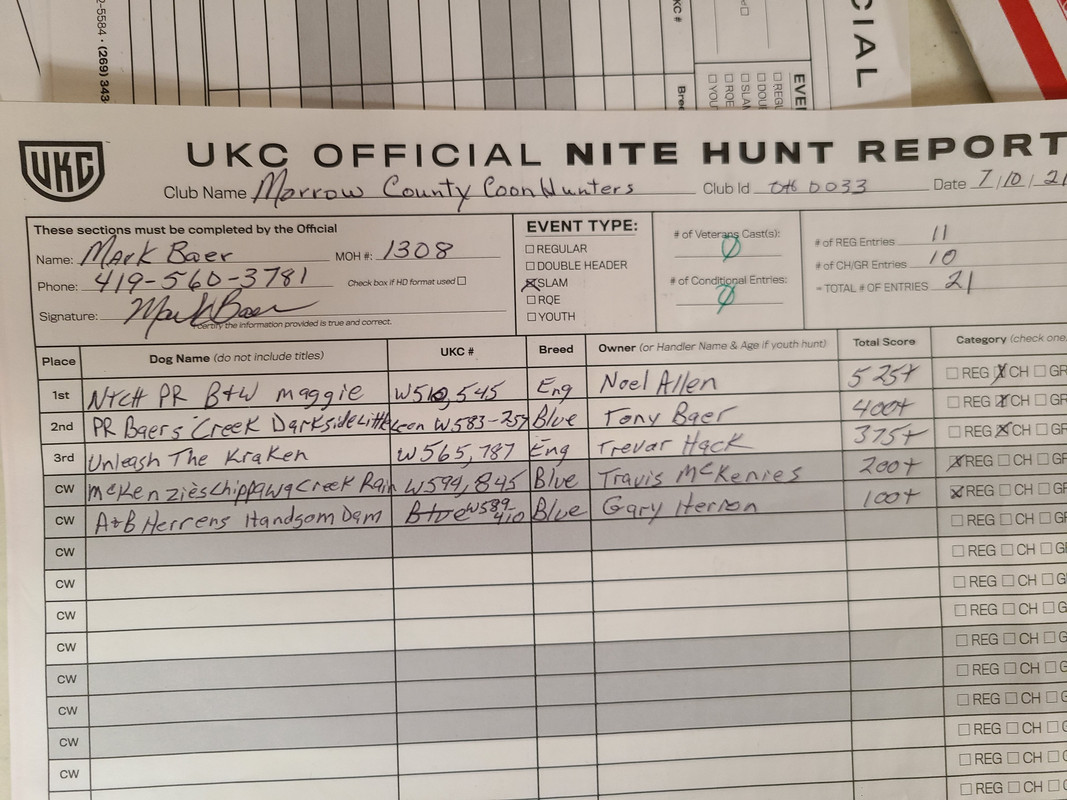 2-5584 • (269) 343-
KC #
Bree
CIAL
EVE
☐ REGU
☐ DOU
☐ SLAM
☐ RQE
☐ YOU
UKC
UKC OFFICIAL NITE HUNT REPORT
Club Name Morrow County Coon Hunters Club Id OH 0033 Date 7/10/21
These sections must be completed by the Official
Name: Mark Baer MOH #: 1308
Phone: 419-560-3781 Check box if HD format used ☐
Signature: Mark Baer
I certify the information provided is true and correct.
EVENT TYPE:
☐ REGULAR
☐ DOUBLE HEADER
☒ SLAM
☐ RQE
☐ YOUTH
# of Veterans Cast(s):
Ø
# of Conditional Entries:
Ø
# of REG Entries 11
# of CH/GR Entries 10
= TOTAL # OF ENTRIES 21
Place Dog Name (do not include titles) UKC # Breed Owner (or Handler Name & Age if youth hunt) Total Score Category (check one
1st NTCH PR B+W maggie W510,545 Eng Noel Allen 525+ ☐ REG ☒ CH ☐ GR
2nd PR Baers Creek Darkside Little Leon W583-257 Blue Tony Baer 400+ ☐ REG ☒ CH ☐ GR
3rd Unleash The Kraken W565,787 Eng Trevar Hack 375+ ☐ REG ☒ CH ☐ GF
CW McKenzies Chippawa Creek Rain W594,845 Blue Travis McKenies 200+ ☒ REG ☐ CH ☐ GF
CW A+B Herrens Handsom Dam W589-410 Blue Gary Herron 100+ ☒ REG ☐ CH ☐ GF
CW ☐ REG ☐ CH ☐ GF
CW ☐ REG ☐ CH ☐ G
CW ☐ REG ☐ CH ☐ G
CW ☐ REG ☐ CH ☐ G
CW ☐ REG ☐ CH ☐ G
CW ☐ REG ☐ CH ☐ G
CW ☐ REG ☐ CH ☐ G
CW ☐ REG ☐ CH ☐ G
☐ REG ☐ CH ☐ G
☐ REG ☐ CH ☐